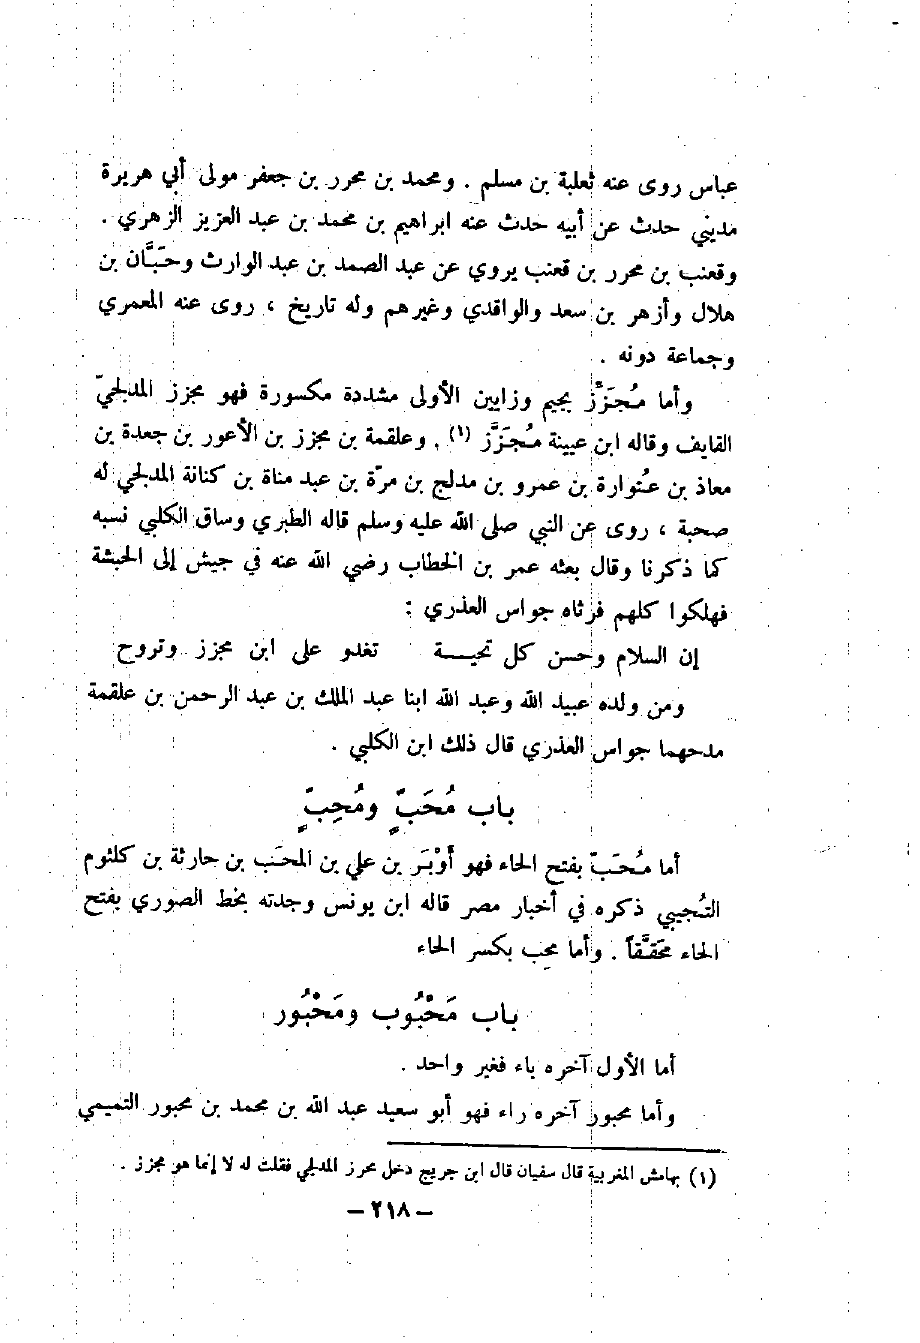 عباس روى عنه ثعلبة بن مسلم . ومحمد بن محرر بن جعفر مولى أبي هريرة
مديني حدث عن أبيه حدث عنه ابراهيم بن محمد بن عبد العزيز الزهري .
وقعنب بن محرر بن قعنب يروي عن عبد الصمد بن عبد الوارث وحَبَّان بن
هلال وأزهر بن سعد والواقدي وغيرهم وله تاريخ ، روى عنه المعمري
وجماعة دونه .
وأما مُجَزِّز بجيم وزايين الأولى مشددة مكسورة فهو مجزز المدلجيّ
القايف وقاله ابن عيينة مُجَزَّز (١) . وعلقمة بن مجزز بن الأعور بن جعدة بن
معاذ بن عُتوارة بن عمرو بن مدلج بن مرّة بن عبد مناة بن كنانة المدلجي له
صحبة ، روى عن النبي صلى الله عليه وسلم قاله الطبري وساق الكلبي نسبه
كما ذكرنا وقال بعثه عمر بن الخطاب رضي الله عنه في جيش إلى الحبشة
فهلكوا كلهم فرثاه جواس العذري :
إن السلام وحسن كل تحيـــة تغدو على ابن مجزز وتروح
ومن ولده عبيد الله وعبد الله ابنا عبد الملك بن عبد الرحمن بن علقمة
مدحهما جواس العذري قال ذلك ابن الكلبي .
باب مُحَبٍّ ومُحِبٍّ
أما مُحَبّ بفتح الحاء فهو أوْبَر بن علي بن المحَب بن حارثة بن كلثوم
التُجيبي ذكره في أخبار مصر قاله ابن يونس وجدته بخط الصوري بفتح
الحاء محَقَّقاً . وأما محِب بكسر الحاء
باب مَحْبُوب ومَحْبُور
أما الأول آخره باء فغير واحد .
وأما محبور آخره راء فهو أبو سعيد عبد الله بن محمد بن محبور التميمي
(١) بهامش المغربية قال سفيان قال ابن جريج دخل محرز المدلجي فقلت له لا إنما هو مجزز .
– ٢١٨ –